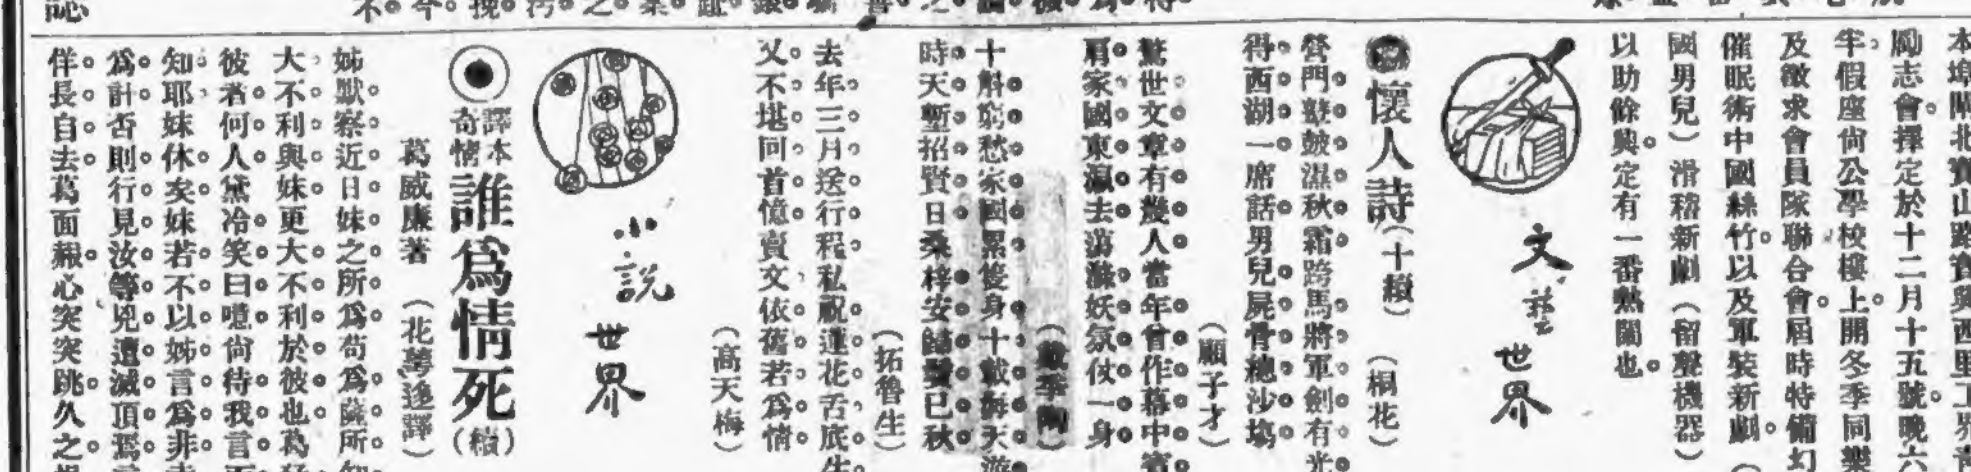 本埠閘北寶山路寶興西里工界
勵志會擇定於十二月十五號晚六
半。假座尙公學校樓上。開冬季同樂
及徵求會員隊聯合會。屆時特備幻
催眠術中國絲竹。以及軍裝新劇。（
國男兒）滑稽新劇（留聲機器）
以助餘興。定有一番熱鬧也。
文藝世界
懷人詩（十續）（桐花）
營門鼙皷濕秋霜跨馬將軍劍有光
得西湖一席話男兒屍骨總沙塲
（顧子才）
驚世文章有幾人當年曾作幕中賓
肩家國東瀛去蕩滌妖氛仗一身
（戴季陶）
十斛窮愁家國累隻身十載海天游
時天塹招賢日桑梓安歸鬢已秋
（拓魯生）
去年三月送行程私祝蓮花舌底生
又不堪回首憶賣文依舊若爲情
（高天梅）
小說世界
譯本奇情 誰爲情死（續）
葛威廉著（花萼逸譯）
姊默察近日妹之所爲苟爲薩所知
大不利與妹更大不利於彼也葛
彼者何人黛冷笑曰噫尙待我言
知耶妹休矣妹若不以姊言爲非
爲計否則行見汝等兇遭滅頂焉
佯長自去葛面赧心突突跳久之